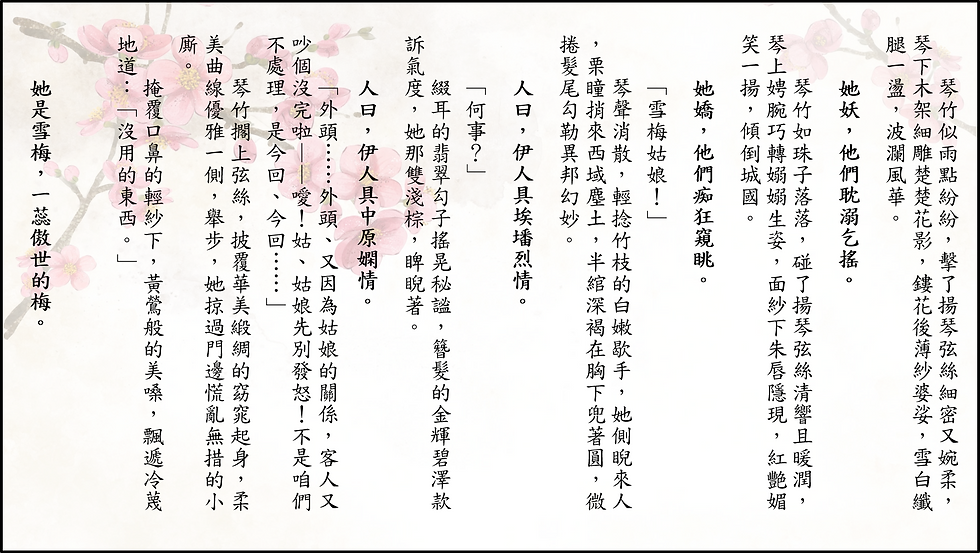 琴竹似雨點紛紛，擊了揚琴弦絲細密又婉柔，
琴下木架細雕楚楚花影，鏤花後薄紗婆娑，雪白纖
腿一盪，波瀾風華。
她妖，他們耽溺乞搖。
琴竹如珠子落落，碰了揚琴弦絲清響且暖潤，
琴上娉腕巧轉嫋嫋生姿，面紗下朱唇隱現，紅艷媚
笑一揚，傾倒城國。
她嬌，他們痴狂窺眺。
「雪梅姑娘！」
琴聲消散，輕捻竹枝的白嫩歇手，她側睨來人
，栗瞳捎來西域塵土，半綰深褐在胸下兜著圓，微
捲髮尾勾勒異邦幻妙。
人曰，伊人具埃墦烈情。
「何事？」
綴耳的翡翠勾子搖晃秘謐，簪髮的金輝碧澤款
訴氣度，她那雙淺棕，睥睨著。
人曰，伊人具中原嫻情。
「外頭……外頭、又因為姑娘的關係，客人又
吵個沒完啦——噯！姑、姑娘先別發怒！不是咱們
不處理，是今回、今回……」
琴竹擱上弦絲，披覆華美緞綢的窈窕起身，柔
美曲線優雅一側，舉步，她掠過門邊慌亂無措的小
廝。
掩覆口鼻的輕紗下，黃鶯般的美嗓，飄遞冷蔑
地道：「沒用的東西。」
她是雪梅，一蕊傲世的梅。